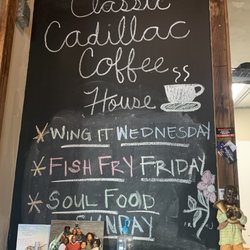 Classic
Cadillac
Coffee
House
* WING IT WEDNESDAY
* FISH FRY FRIDAY
* SOUL FOOD
SUNDAY